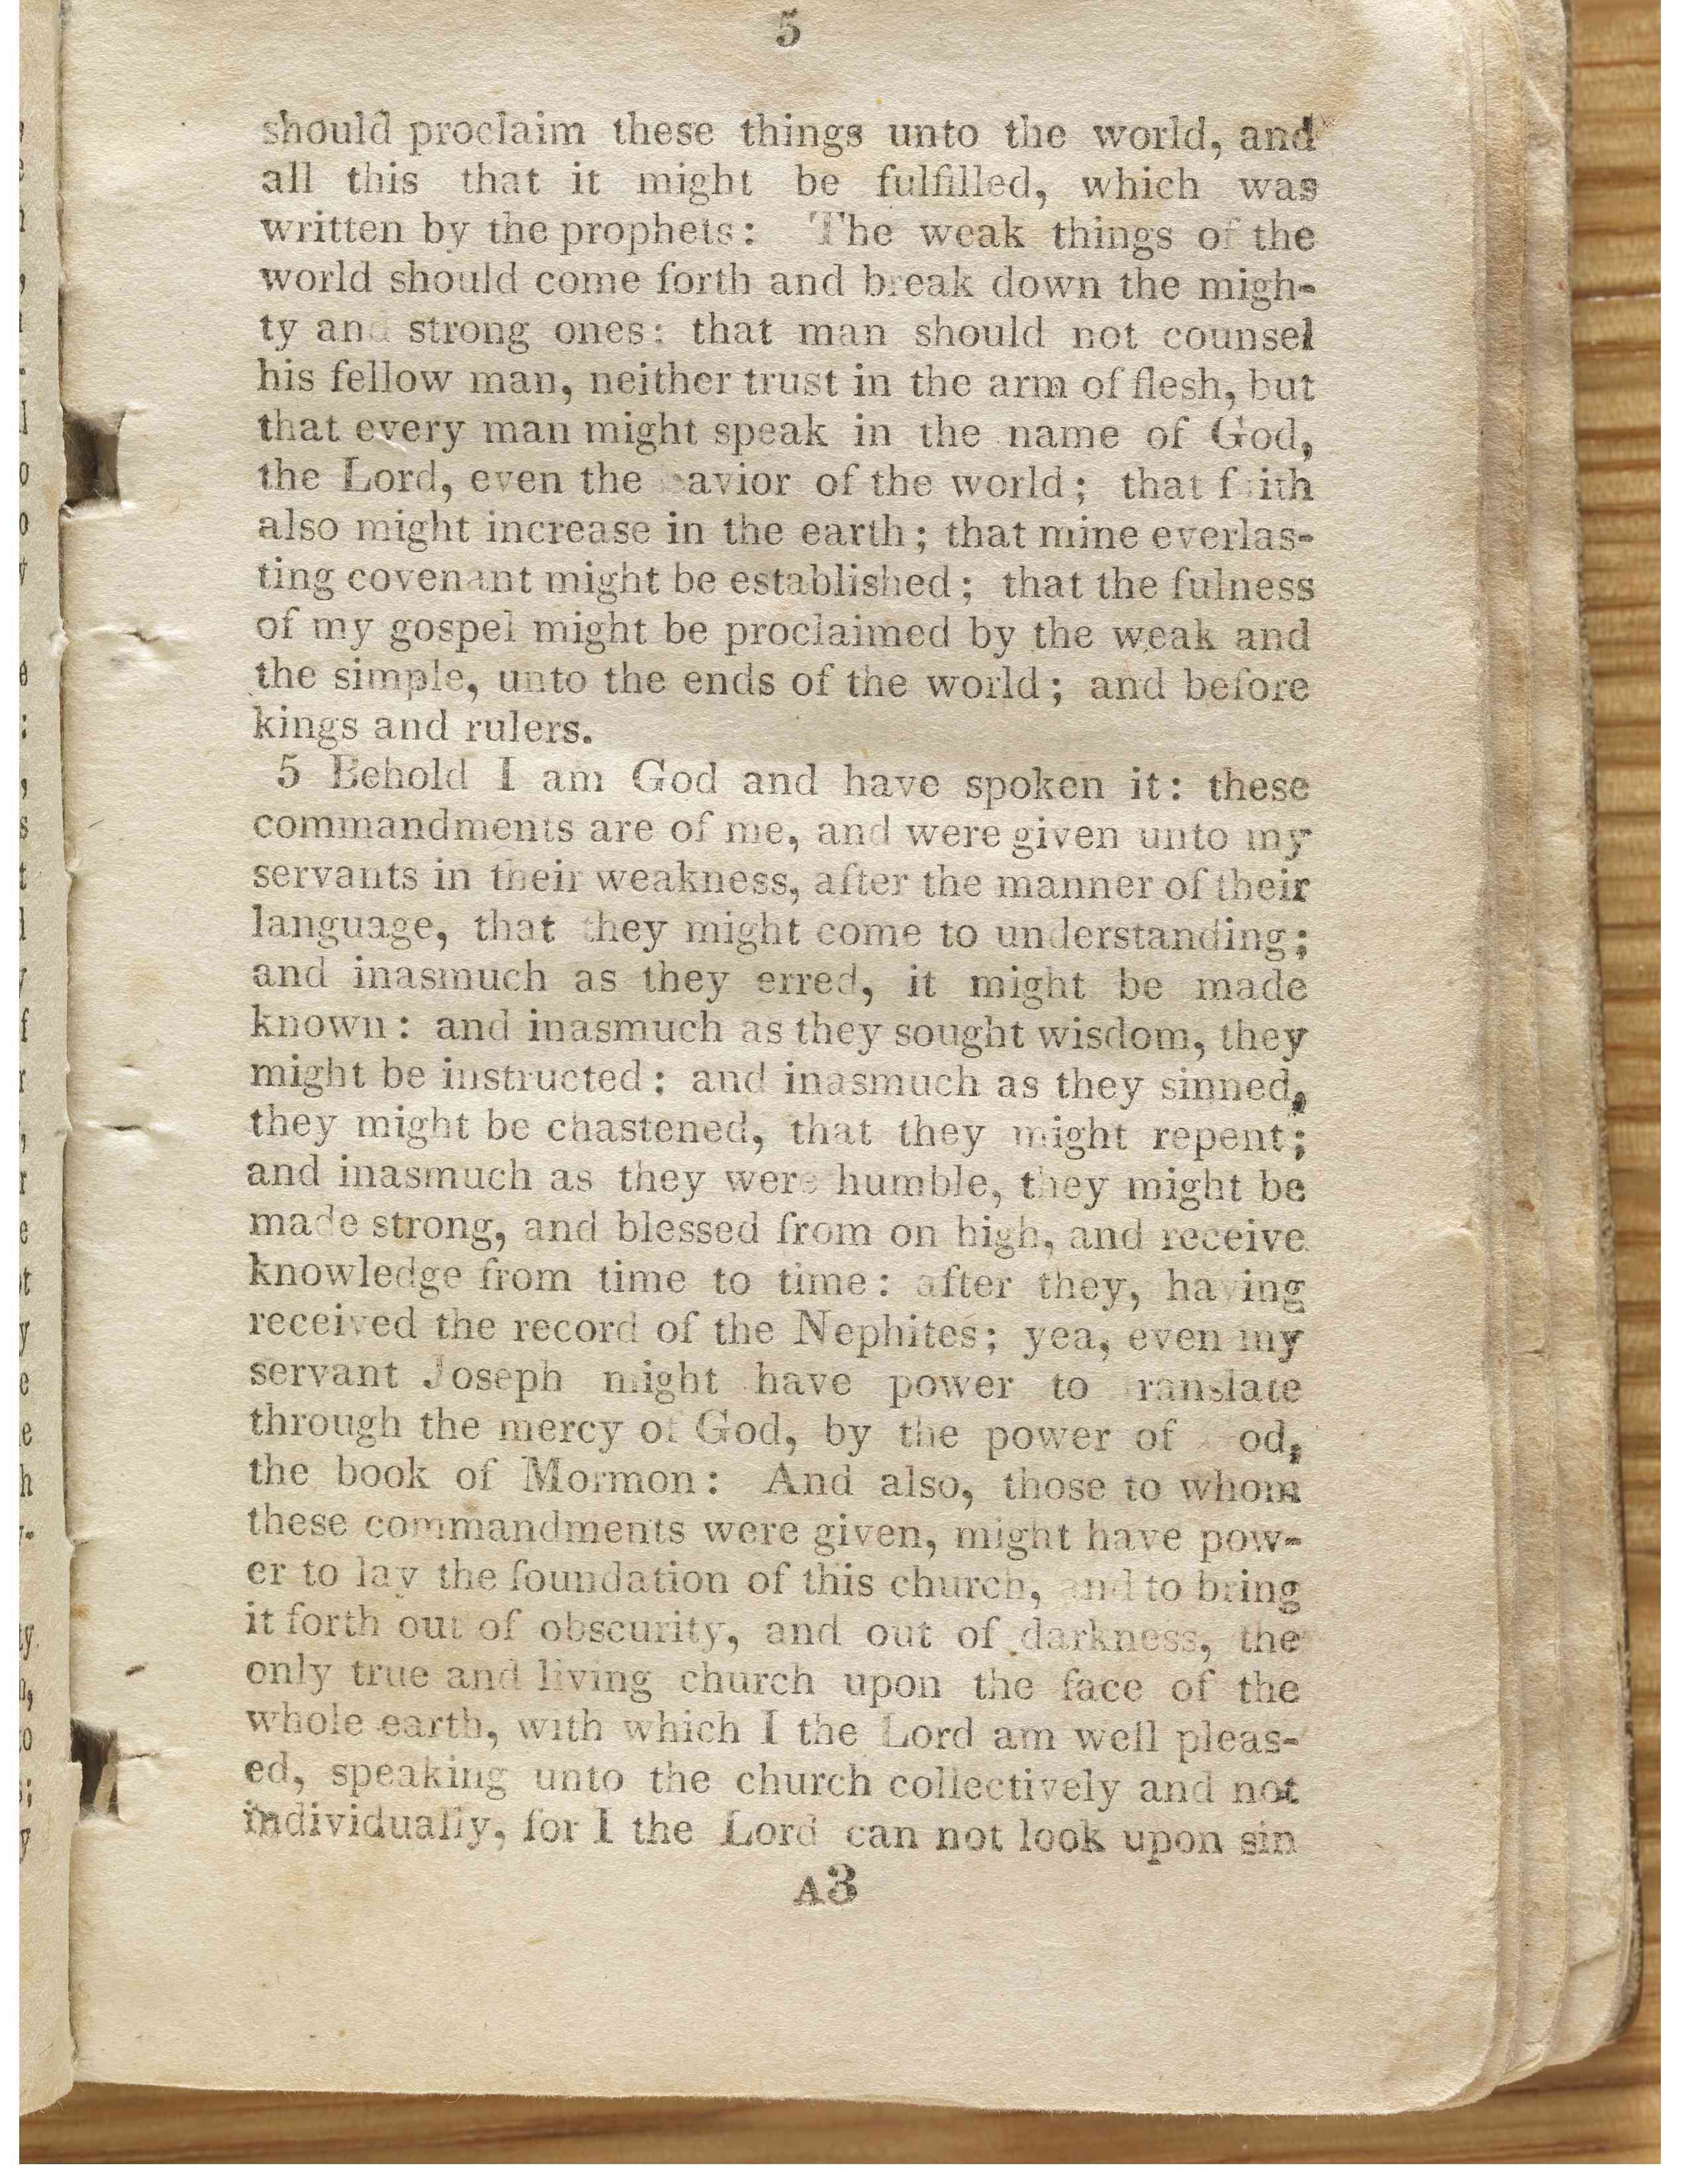 5
should proclaim these things unto the world, and
all this that it might be fulfilled, which was
written by the prophets: The weak things of the
world should come forth and break down the migh-
ty and strong ones: that man should not counsel
his fellow man, neither trust in the arm of flesh, but
that every man might speak in the name of God,
the Lord, even the Savior of the world; that faith
also might increase in the earth; that mine everlas-
ting covenant might be established; that the fulness
of my gospel might be proclaimed by the weak and
the simple, unto the ends of the world; and before
kings and rulers.
5 Behold I am God and have spoken it: these
commandments are of me, and were given unto my
servants in their weakness, after the manner of their
language, that they might come to understanding;
and inasmuch as they erred, it might be made
known: and inasmuch as they sought wisdom, they
might be instructed: and inasmuch as they sinned,
they might be chastened, that they might repent;
and inasmuch as they were humble, they might be
made strong, and blessed from on high, and receive
knowledge from time to time: after they, having
received the record of the Nephites; yea, even my
servant Joseph might have power to translate
through the mercy of God, by the power of God,
the book of Mormon: And also, those to whom
these commandments were given, might have pow-
er to lay the foundation of this church, and to bring
it forth out of obscurity, and out of darkness, the
only true and living church upon the face of the
whole earth, with which I the Lord am well pleas-
ed, speaking unto the church collectively and not
individually, for I the Lord can not look upon sin
A3